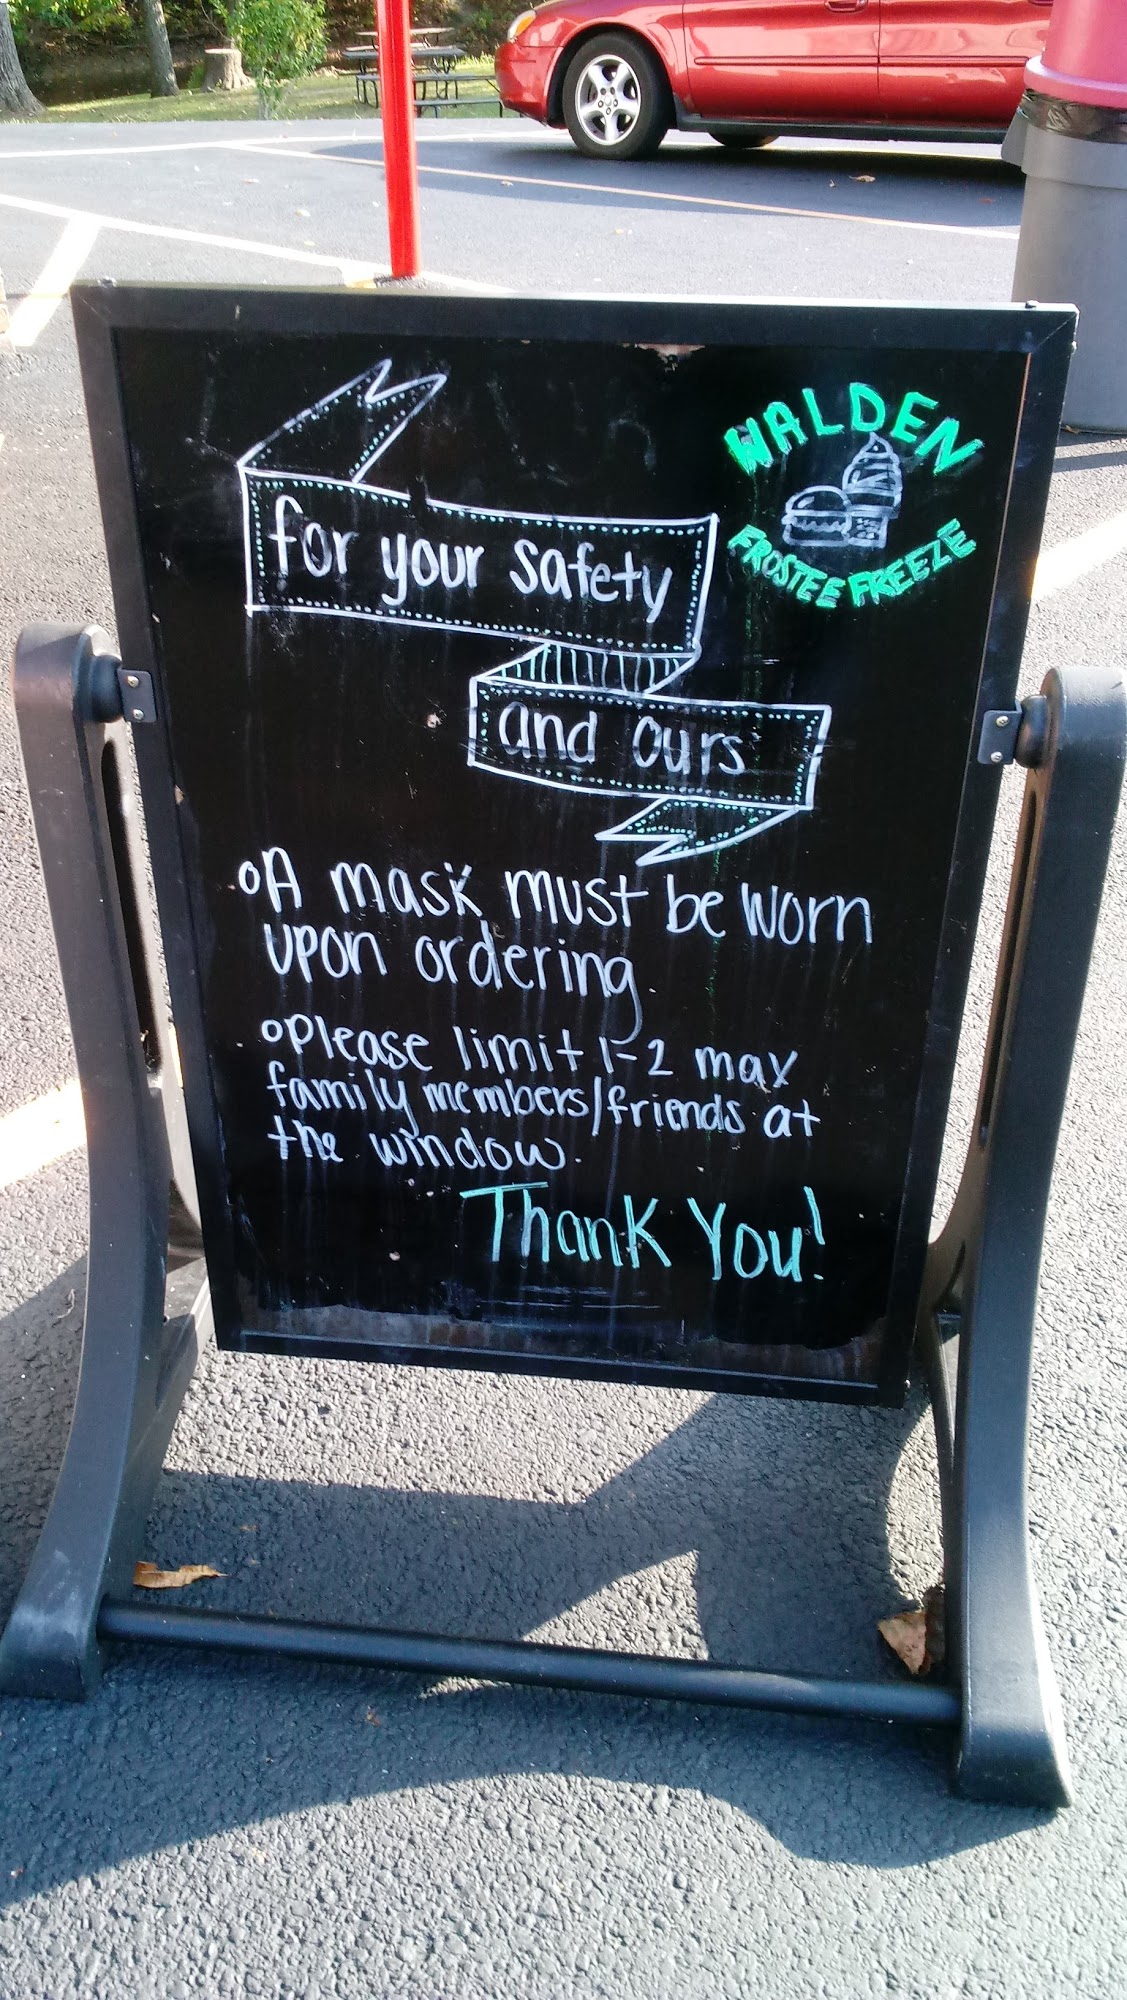 WALDEN
FROSTEE FREEZE
for your safety
and ours
A mask must be worn
upon ordering.
Please limit 1-2 max
family members/friends at
the window.
Thank You!